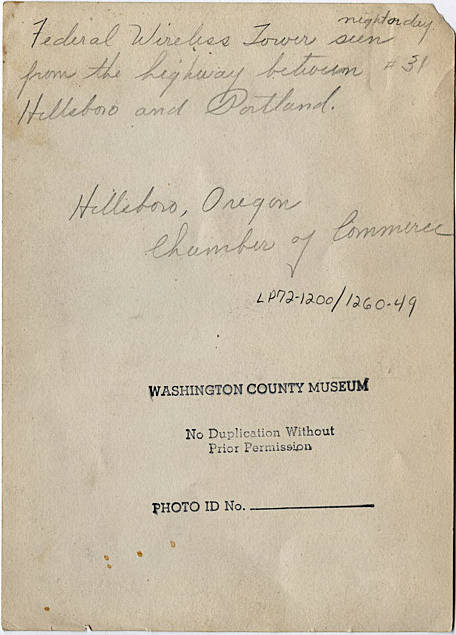 night or day
Federal Wireless Tower seen
from the highway between # 31
Hillsboro and Portland.
Hillsboro, Oregon
Chamber of Commerce
LP72-1200/1260-49
WASHINGTON COUNTY MUSEUM
No Duplication Without
Prior Permission
PHOTO ID No.